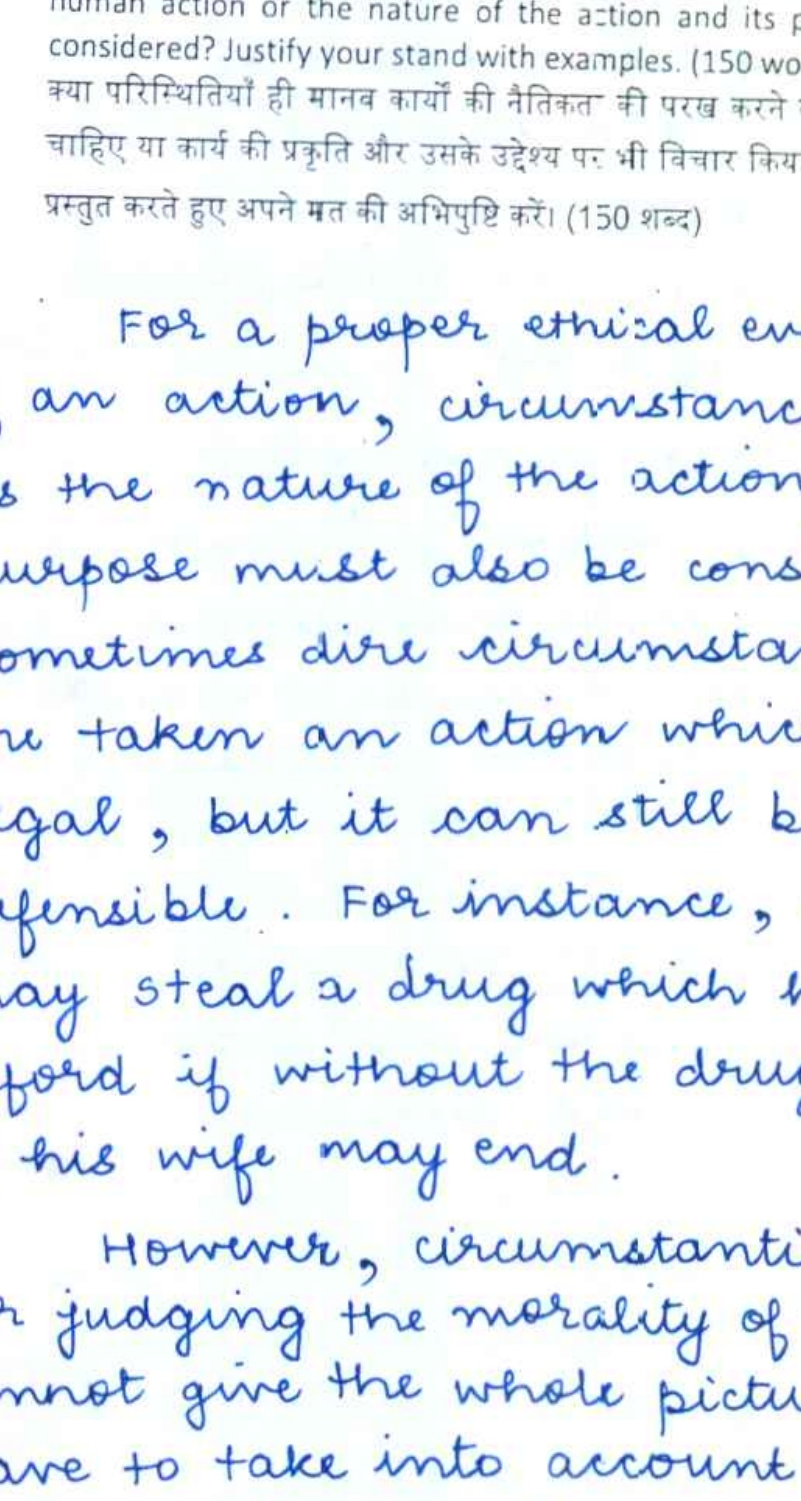 human action or the nature of the action and its p
considered? Justify your stand with examples. (150 wo
क्या परिस्थितियाँ ही मानव कार्यों की नैतिकत की परख करने
चाहिए या कार्य की प्रकृति और उसके उद्देश्य पर भी विचार किय
प्रस्तुत करते हुए अपने मत की अभिपुष्टि करें। (150 शब्द)
For a proper ethical ev
, an action, circumstanc
s the nature of the action
urpose must also be cons
ometimes dire circumsta
ne taken an action whic
gal, but it can still b
efensible. For instance,
ay steal a drug which h
fford if without the drug
his wife may end.
However, circumstanti
r judging the morality of
nnot give the whole pictu
ave to take into account